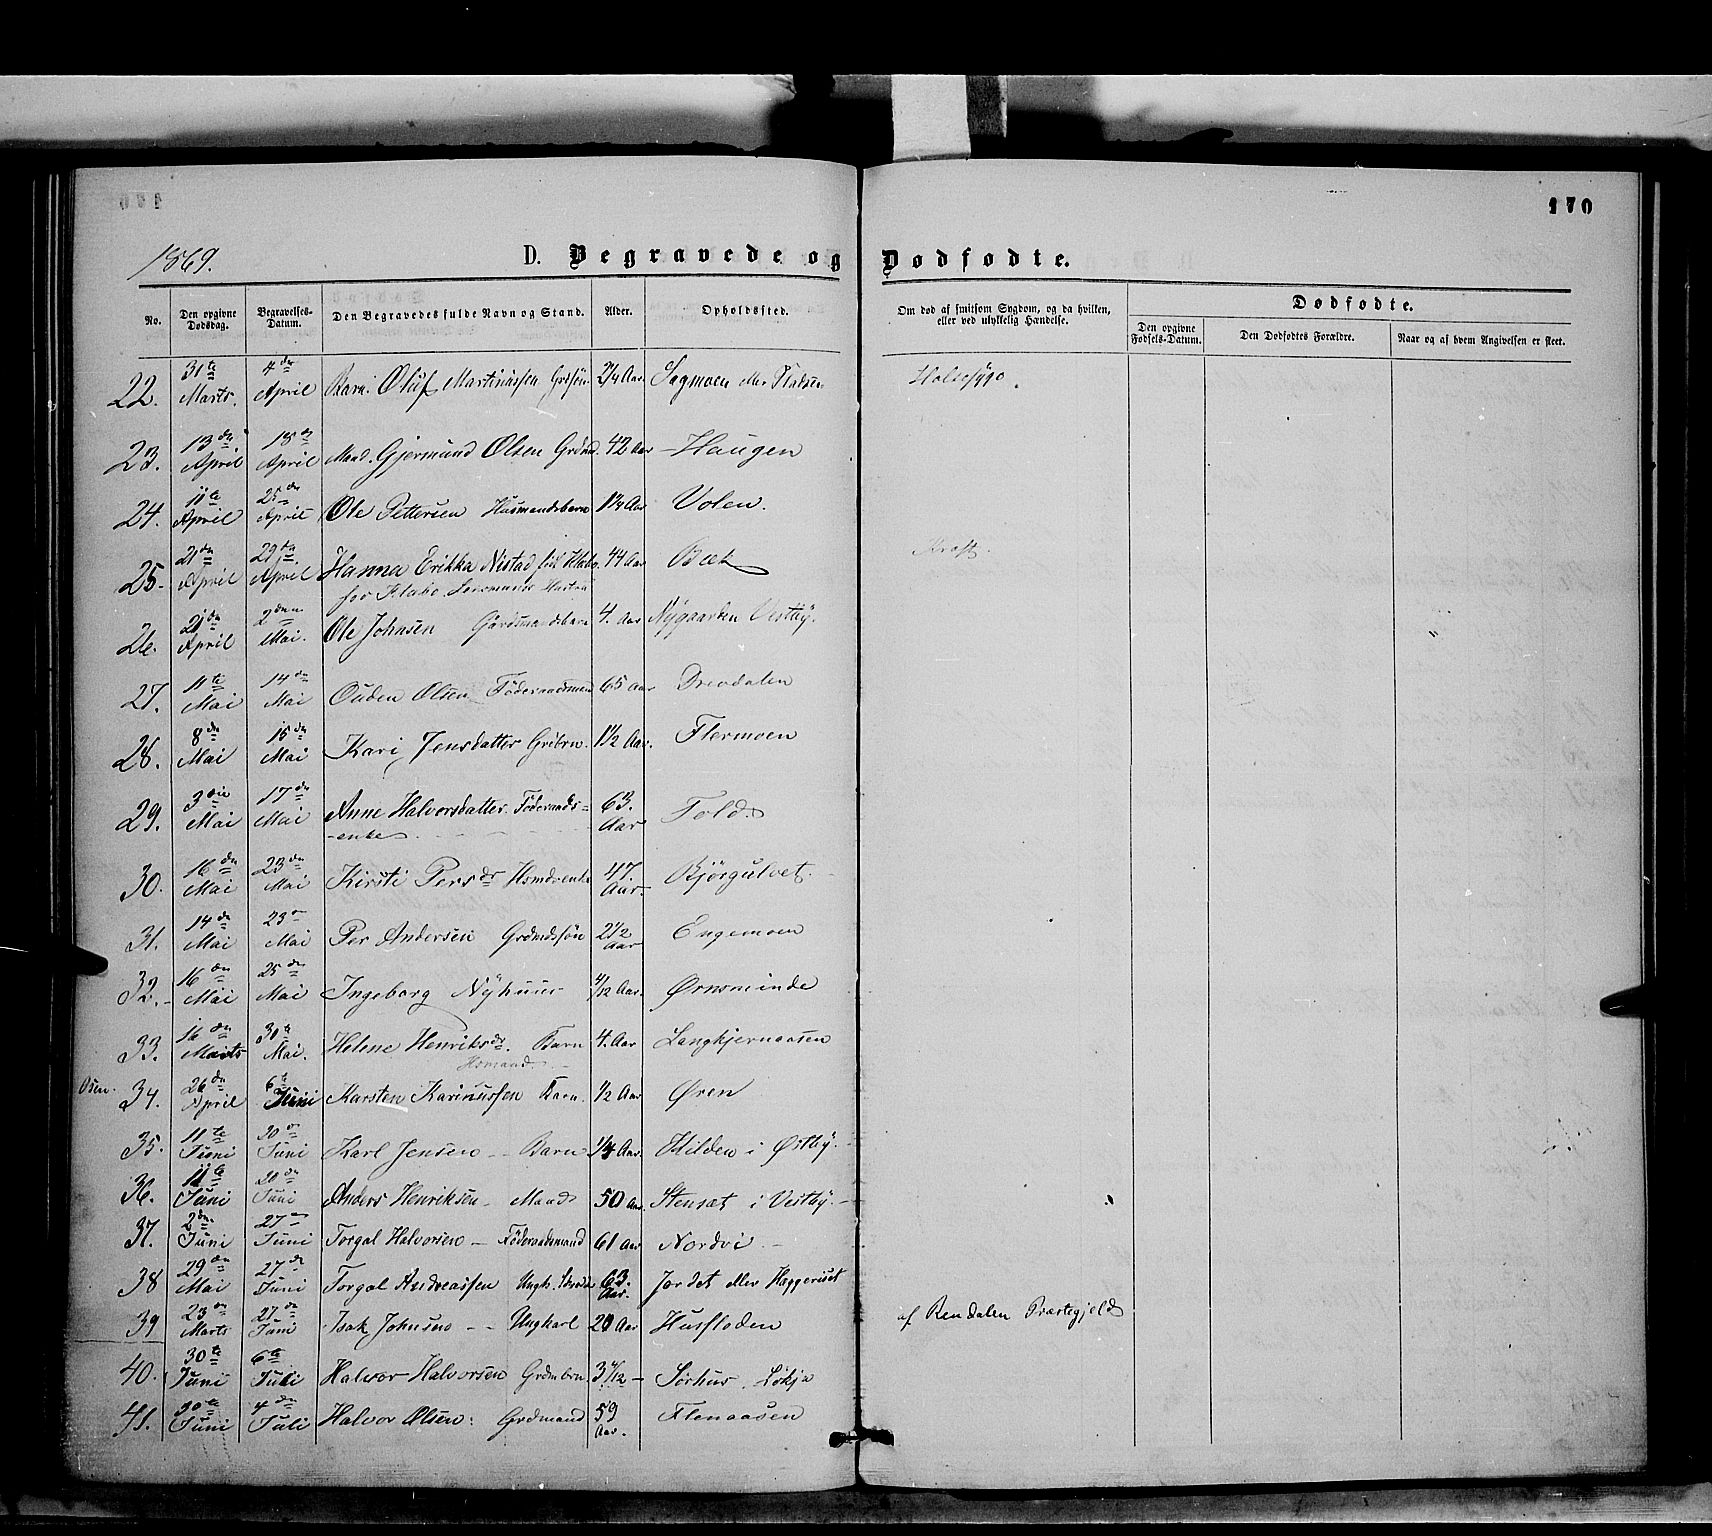 170
1869.
D. Begravede og Dødfødte.
No.
Den opgivne Dødsdag.
Begravelses-Datum.
Den Begravedes fulde Navn og Stand.
Alder.
Opholdssted.
Om død af smitsom Sygdom, og da hvilken, eller ved ulykkelig Hændelse.
Dødfødte.
Den opgivne Fødsels-Datum.
Den Dødfødtes Forældre.
Naar og af hvem Angivelsen er skeet.
22. 31te Marts. 4de April Barn. Oluf Martinussen 2/4 Aar Sagmoen Halsesyge.
23. 13de April 18de April Mand. Gjermund Olsen Grdmd. 42 Aar Haugen
24. 11te April 25de April Ole Pettersen Husmandsbarn 1 3/4 Aar Volen.
25. 21de April 29de April Hanna Erikka Nistad 44 Aar Bæk Kræft.
26. 21de April 2den Mai. Ole Johnsen Gårdmandsbarn 4. Aar Nygaarden Vestby.
27. 11te Mai 14de Mai Ouden Olsen Föderaadsmand 65 Aar Drevdalen
28. 8de Mai 15de Mai Kari Jensdatter Grdbrn. 1 1/2 Aar. Flermoen
29. 3die Mai 17de Mai Anne Halvorsdatter. Föderaads=
-enke 63. Aar Fold
30. 16de Mai 23de Mai Kirsti Persdr Hsmdsenke 47. Aar Bjørgulvet.
31. 14de Mai 23de Mai Per Andersen Grdmdssön 2 1/2 Aar Engemoen
32. 16de Mai 25de Mai Ingeborg Nÿhuus 4/12 Aar. Ørnsminde
33. 16de Marts 30te Mai. Helene Henriksdr. Barn 4. Aar Langkjernaasen
Hsmand.
Osen. 34. 26de April 6te Juni Karsten Karinussen Barn. 1/2 Aar Øren
35. 11te Juni 20de Juni Karl Jensen Barn 1/4 Aar. Kilden i Østby.
36. 11te Juni 20de Juni Anders Henriksen Mand 50 Aar. Stensæt i Vestby.
37. 2den Juni 27de Juni Torgal Halvorsen Föderaadsmand 61 Aar Nordvi
38 29de Mai 27de Juni Torgal Andreassen Ungk. 63. Aar. Jordet eller Haggeriset
39 23de Marts 27de Juni Isak Johnsen Ungkarl 20 Aar Husfloden af Rendalen Præstegjeld
40. 30te Juni 6te Juli Halvor Halvorsen Grdmbrn 3 4/12 Sørhus. Løkja
41. 30te Juni 4de Juli Halvor Olsen: Grdmand 59 Aar. Flenaasen